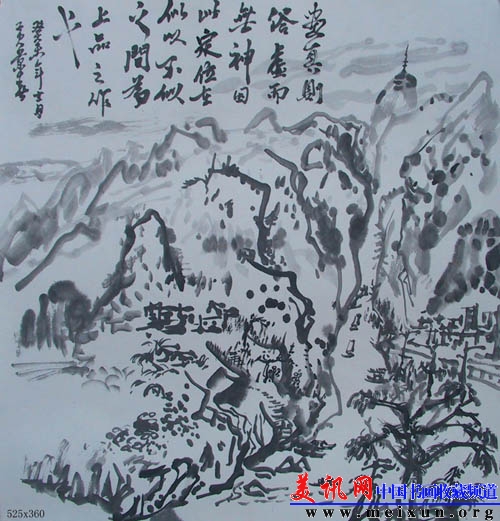 真則
俗虚而
無神因
此定位在
似以不似
之間為
上品之作
癸未年
525x360
美讯网 中国书画收藏频道
www.meixun.org